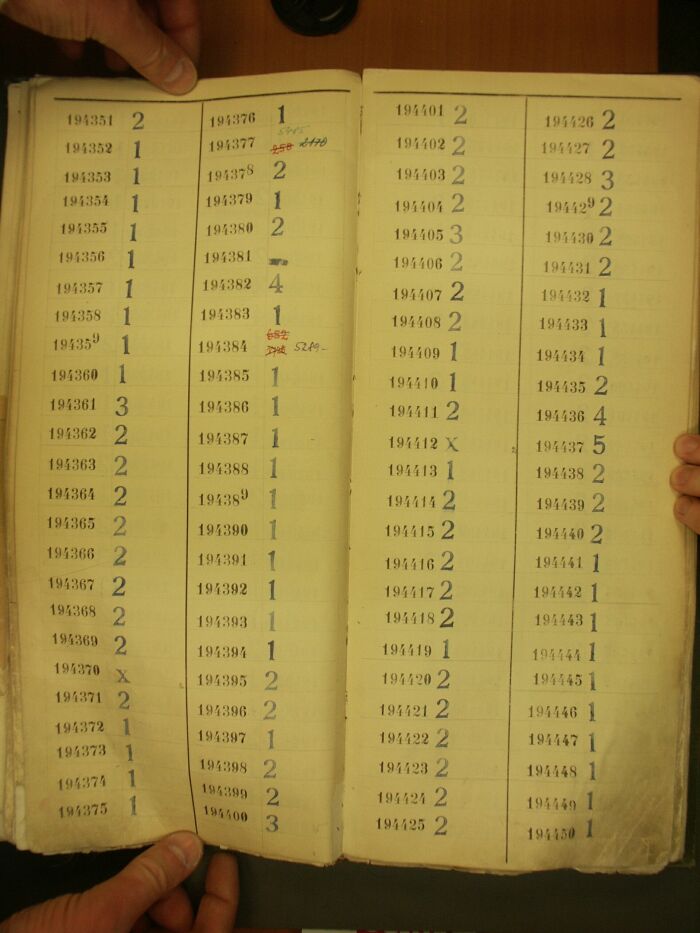 194351 2
194352 1
194353 1
194354 1
194355 1
194356 1
194357 1
194358 1
194359 1
194360 1
194361 3
194362 2
194363 2
194364 2
194365 2
194366 2
194367 2
194368 2
194369 2
194370 x
194371 2
194372 1
194373 1
194374 1
194375 1
194376 1
194377 258 2170
194378 2
194379 1
194380 2
194381
194382 4
194383 1
194384 652 5289-
194385 1
194386 1
194387 1
194388 1
194389 1
194390 1
194391 1
194392 1
194393 1
194394 1
194395 2
194396 2
194397 1
194398 2
194399 2
194400 3
194401 2
194402 2
194403 2
194404 2
194405 3
194406 2
194407 2
194408 2
194409 1
194410 1
194411 2
194412 x
194413 1
194414 2
194415 2
194416 2
194417 2
194418 2
194419 1
194420 2
194421 2
194422 2
194423 2
194424 2
194425 2
194426 2
194427 2
194428 3
194429 2
194430 2
194431 2
194432 1
194433 1
194434 1
194435 2
194436 4
194437 5
194438 2
194439 2
194440 2
194441 1
194442 1
194443 1
194444 1
194445 1
194446 1
194447 1
194448 1
194449 1
194450 1